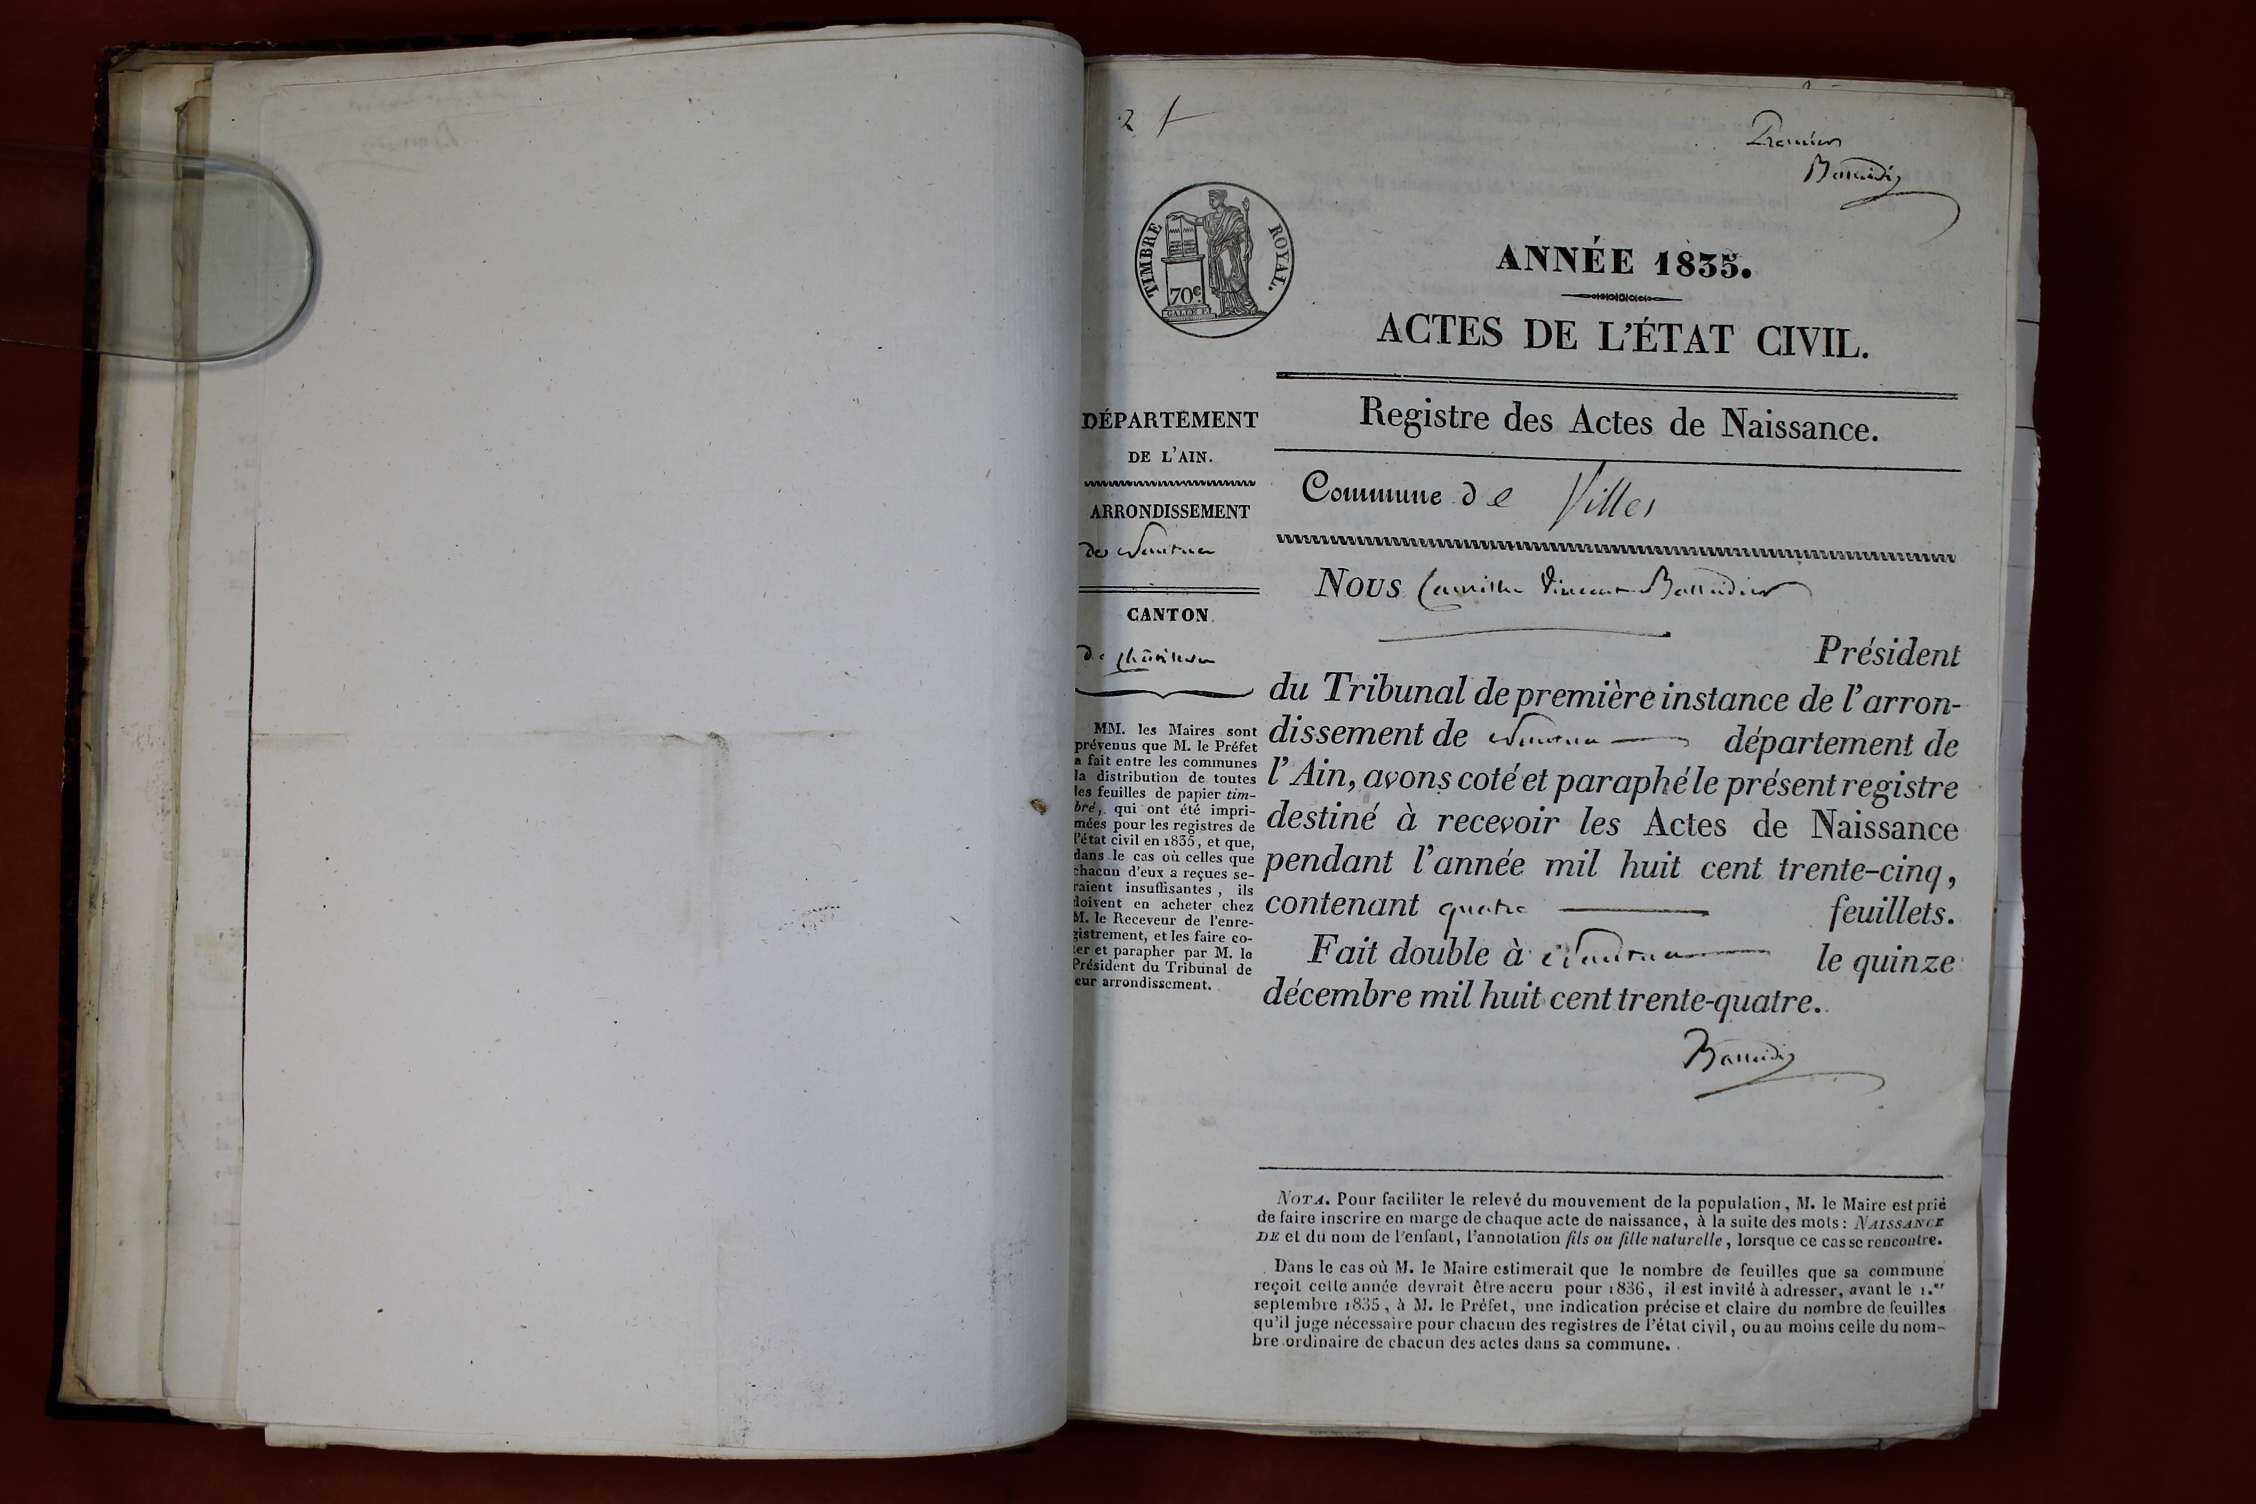 2
Premier
TIMBRE ROYAL.
70c
ANNÉE 1835.
ACTES DE L'ÉTAT CIVIL.
DÉPARTEMENT
DE L'AIN.
ARRONDISSEMENT
de Nantua
CANTON
de Châtillon
MM. les Maires sont
prévenus que M. le Préfet
a fait entre les communes
la distribution de toutes
les feuilles de papier tim-
bré, qui ont été impri-
mées pour les registres de
l'état civil en 1835, et que,
dans le cas où celles que
chacun d'eux a reçues se-
raient insuffisantes, ils
doivent en acheter chez
M. le Receveur de l'enre-
gistrement, et les faire co-
ter et parapher par M. le
Président du Tribunal de
eur arrondissement.
Registre des Actes de Naissance.
Commune de Villes
NOUS Camille Vincent
Président
du Tribunal de première instance de l'arron-
dissement de Nantua département de
l'Ain, avons coté et paraphé le présent registre
destiné à recevoir les Actes de Naissance
pendant l'année mil huit cent trente-cinq,
contenant quatre feuillets.
Fait double à Nantua le quinze
décembre mil huit cent trente-quatre.
NOTA. Pour faciliter le relevé du mouvement de la population, M. le Maire est prié
de faire inscrire en marge de chaque acte de naissance, à la suite des mots: NAISSANCE
DE et du nom de l'enfant, l'annotation fils ou fille naturelle, lorsque ce cas se rencontre.
Dans le cas où M. le Maire estimerait que le nombre de feuilles que sa commune
reçoit cette année devrait être accru pour 1836, il est invité à adresser, avant le 1.er
septembre 1835, à M. le Préfet, une indication précise et claire du nombre de feuilles
qu'il juge nécessaire pour chacun des registres de l'état civil, ou au moins celle du nom-
bre ordinaire de chacun des actes dans sa commune.